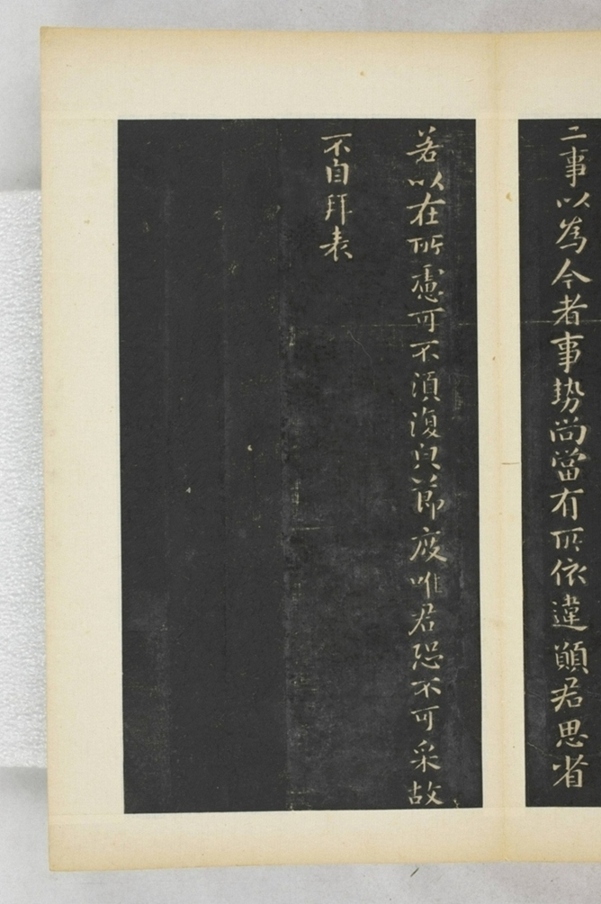 二事以為今者事势尚當有所依違願君思省
若以在所慮可不湏復白節度唯君恐不可采故
不自拜表